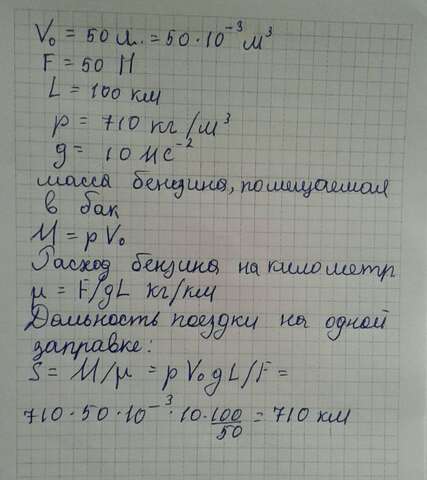 V₀ = 50 л. = 50·10⁻³ м³
F = 50 Н
L = 100 км
p = 710 кг/м³
g = 10 мс⁻²
масса бензина, помещаемая
в бак
M = pV₀
Расход бензина на километр
μ = F/gL кг/км
Дальность поездки на одной
заправке:
S = M/μ = pV₀gL/F =
710·50·10⁻³·10·100/50 = 710 км